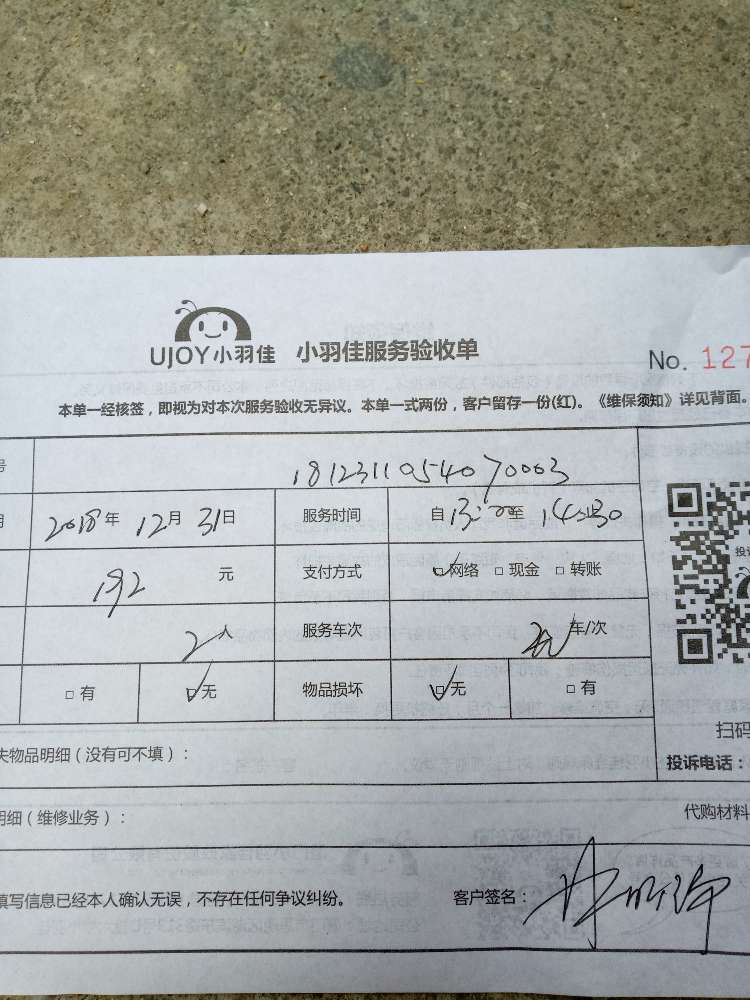 UJOY小羽佳 小羽佳服务验收单
No. 127
本单一经核签，即视为对本次服务验收无异议。本单一式两份，客户留存一份(红)。《维保须知》详见背面。
号 1812311054070003
期 2018年 12月 31日 服务时间 自 13:00 至 14:30
192 元 支付方式 网络 现金 转账
2 人 服务车次 无 车/次
有 无 物品损坏 无 有
失物品明细（没有可不填）：
扫码
投诉电话：
明细（维修业务）：
代购材料
填写信息已经本人确认无误，不存在任何争议纠纷。 客户签名：